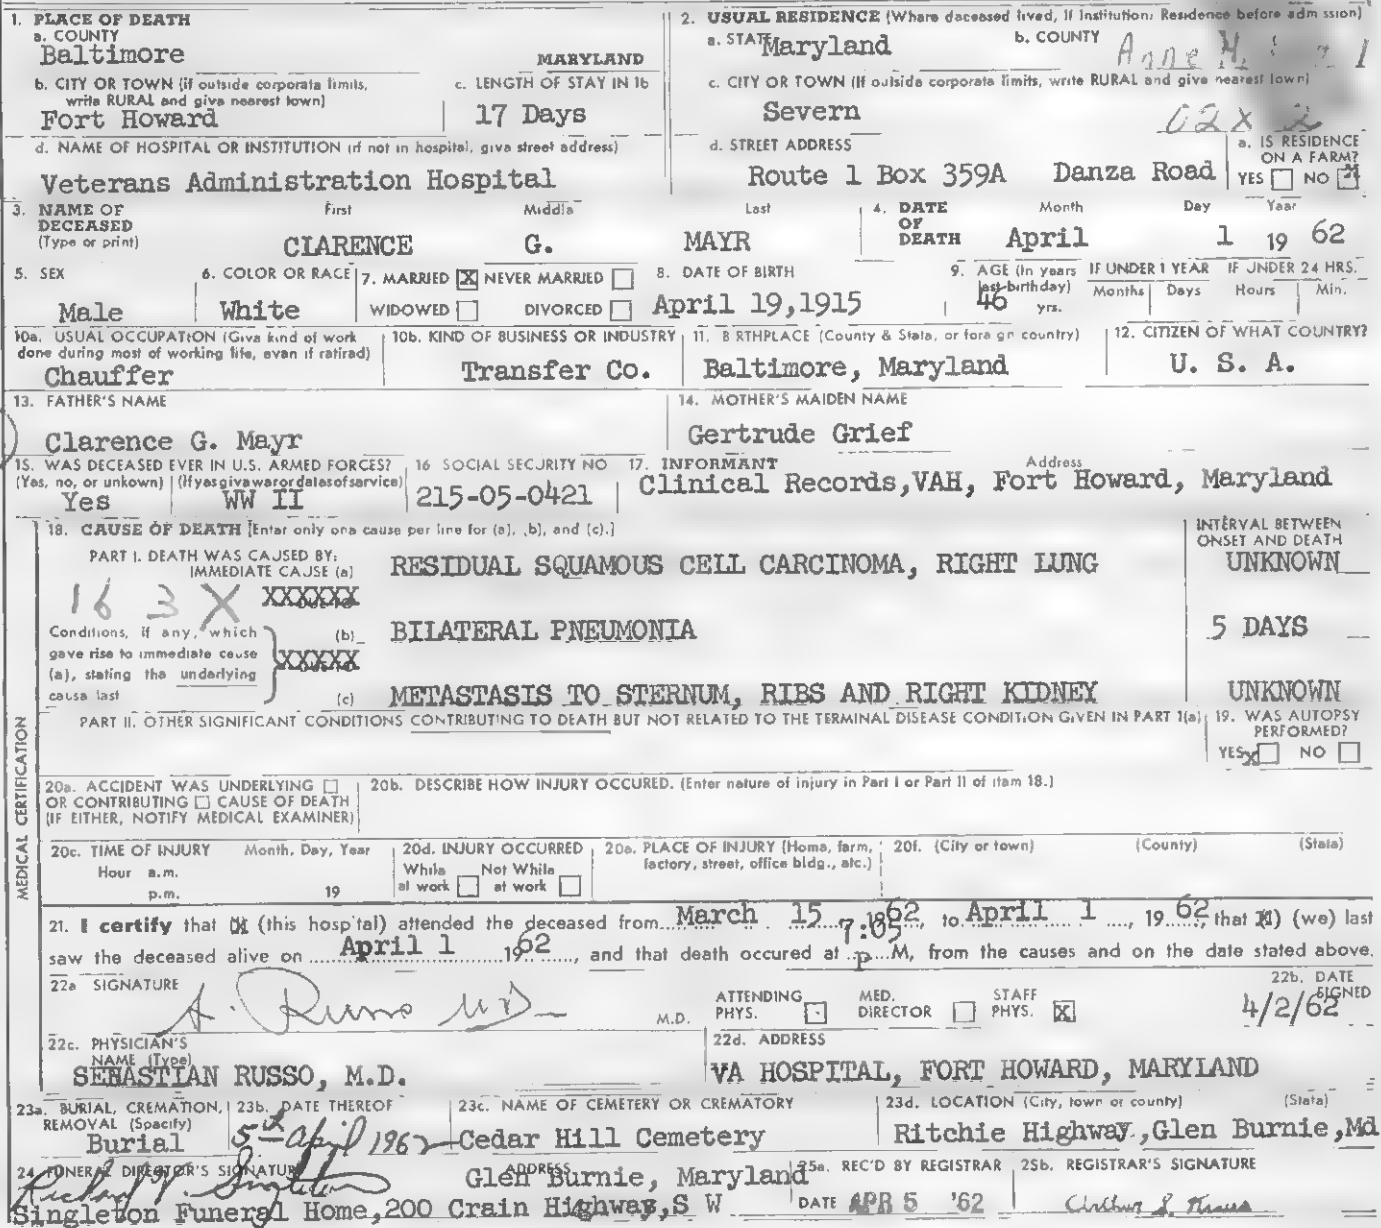 1. PLACE OF DEATH
a. COUNTY
Baltimore
MARYLAND
b. CITY OR TOWN (if outside corporate limits, write RURAL and give nearest town)
Fort Howard
c. LENGTH OF STAY IN 1b
17 Days
d. NAME OF HOSPITAL OR INSTITUTION (if not in hospital, give street address)
Veterans Administration Hospital
2. USUAL RESIDENCE (Where deceased lived, If Institution: Residence before admission)
a. STATE Maryland
b. COUNTY Anne
c. CITY OR TOWN (If outside corporate limits, write RURAL and give nearest town)
Severn
02X 2
d. STREET ADDRESS
Route 1 Box 359A Danza Road
e. IS RESIDENCE ON A FARM?
YES NO X
3. NAME OF DECEASED (Type or print)
First Middle Last
CLARENCE G. MAYR
4. DATE OF DEATH
Month Day Year
April 1 19 62
5. SEX
Male
6. COLOR OR RACE
White
7. MARRIED X NEVER MARRIED
WIDOWED DIVORCED
8. DATE OF BIRTH
April 19,1915
9. AGE (In years last birthday)
46 yrs.
IF UNDER 1 YEAR IF UNDER 24 HRS.
Months Days Hours Min.
10a. USUAL OCCUPATION (Give kind of work done during most of working life, even if retired)
Chauffer
10b. KIND OF BUSINESS OR INDUSTRY
Transfer Co.
11. BIRTHPLACE (County & State, or foreign country)
Baltimore, Maryland
12. CITIZEN OF WHAT COUNTRY?
U. S. A.
13. FATHER'S NAME
Clarence G. Mayr
14. MOTHER'S MAIDEN NAME
Gertrude Grief
15. WAS DECEASED EVER IN U.S. ARMED FORCES?
(Yes, no, or unkown) (If yes give war or dates of service)
Yes WW II
16 SOCIAL SECURITY NO
215-05-0421
17. INFORMANT Address
Clinical Records,VAH, Fort Howard, Maryland
MEDICAL CERTIFICATION
18. CAUSE OF DEATH [Enter only one cause per line for (a), (b), and (c).]
INTERVAL BETWEEN ONSET AND DEATH
PART I. DEATH WAS CAUSED BY:
IMMEDIATE CAUSE (a) RESIDUAL SQUAMOUS CELL CARCINOMA, RIGHT LUNG UNKNOWN
163X XXXXXX
Conditions, if any, which gave rise to immediate cause (a), stating the underlying cause last
(b) BILATERAL PNEUMONIA 5 DAYS
XXXXX
(c) METASTASIS TO STERNUM, RIBS AND RIGHT KIDNEY UNKNOWN
PART II. OTHER SIGNIFICANT CONDITIONS CONTRIBUTING TO DEATH BUT NOT RELATED TO THE TERMINAL DISEASE CONDITION GIVEN IN PART 1(a)
19. WAS AUTOPSY PERFORMED?
YES X NO
20a. ACCIDENT WAS UNDERLYING
OR CONTRIBUTING CAUSE OF DEATH
(IF EITHER, NOTIFY MEDICAL EXAMINER)
20b. DESCRIBE HOW INJURY OCCURED. (Enter nature of injury in Part I or Part II of item 18.)
20c. TIME OF INJURY Month, Day, Year
Hour a.m.
p.m. 19
20d. INJURY OCCURRED
While at work Not While at work
20e. PLACE OF INJURY (Home, farm, factory, street, office bldg., etc.)
20f. (City or town) (County) (State)
21. I certify that (this hospital) attended the deceased from March 15, 1962, to April 1, 1962, that (we) last
saw the deceased alive on April 1 1962, and that death occured at 7:05 p M, from the causes and on the date stated above.
22a SIGNATURE
A. Russo M.D. M.D.
ATTENDING PHYS. MED. DIRECTOR STAFF PHYS. X
22b. DATE SIGNED
4/2/62
22c. PHYSICIAN'S NAME (Type)
SEBASTIAN RUSSO, M.D.
22d. ADDRESS
VA HOSPITAL, FORT HOWARD, MARYLAND
23a. BURIAL, CREMATION, REMOVAL (Specify)
Burial
23b. DATE THEREOF
5th April 1962
23c. NAME OF CEMETERY OR CREMATORY
Cedar Hill Cemetery
23d. LOCATION (City, town or county) (State)
Ritchie Highway,Glen Burnie,Md
24. FUNERAL DIRECTOR'S SIGNATURE
Richard V. Singleton
ADDRESS
Glen Burnie, Maryland
Singleton Funeral Home,200 Crain Highway,S W
25a. REC'D BY REGISTRAR
DATE APR 5 '62
25b. REGISTRAR'S SIGNATURE